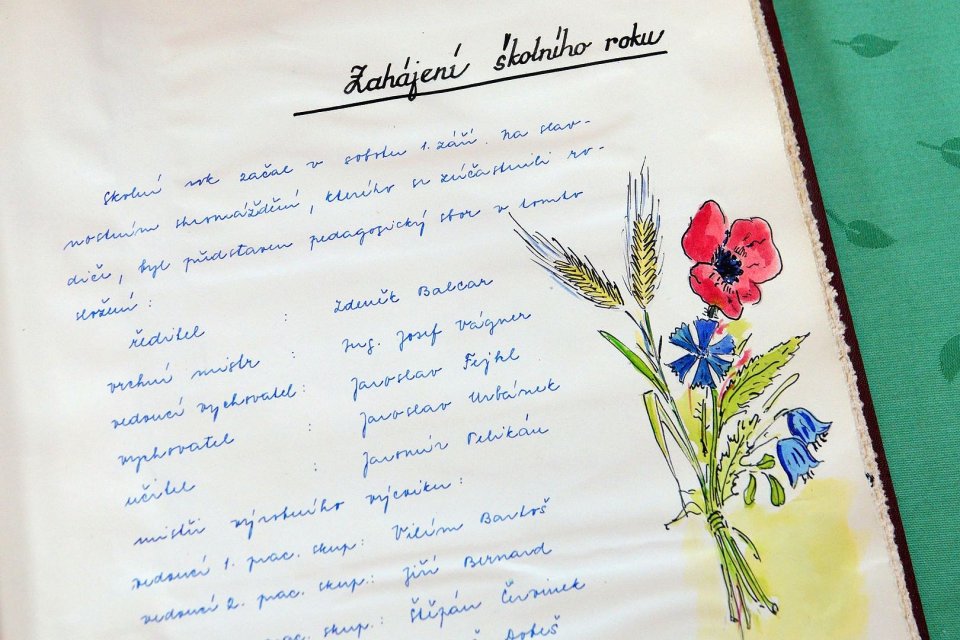 Zahájení školního roku
Školní rok začal v sobotu 1. září. Na slav-
nostním shromáždění, kterého se zúčastnili ro-
diče, byl představen pedagogický sbor v tomto
složení:
ředitel : Zdeněk Balcar
vrchní mistr : Ing. Josef Vágner
vedoucí vychovatel: Jaroslav Fejhl
vychovatel : Jaroslav Urbánek
učitel : Jaromír Pelikán
mistři výrobního výcviku:
vedoucí 1. prac. skup: Vilém Bartoš
vedoucí 2. prac. skup.: Jiří Bernard
prac. skup.: Štěpán Červinek